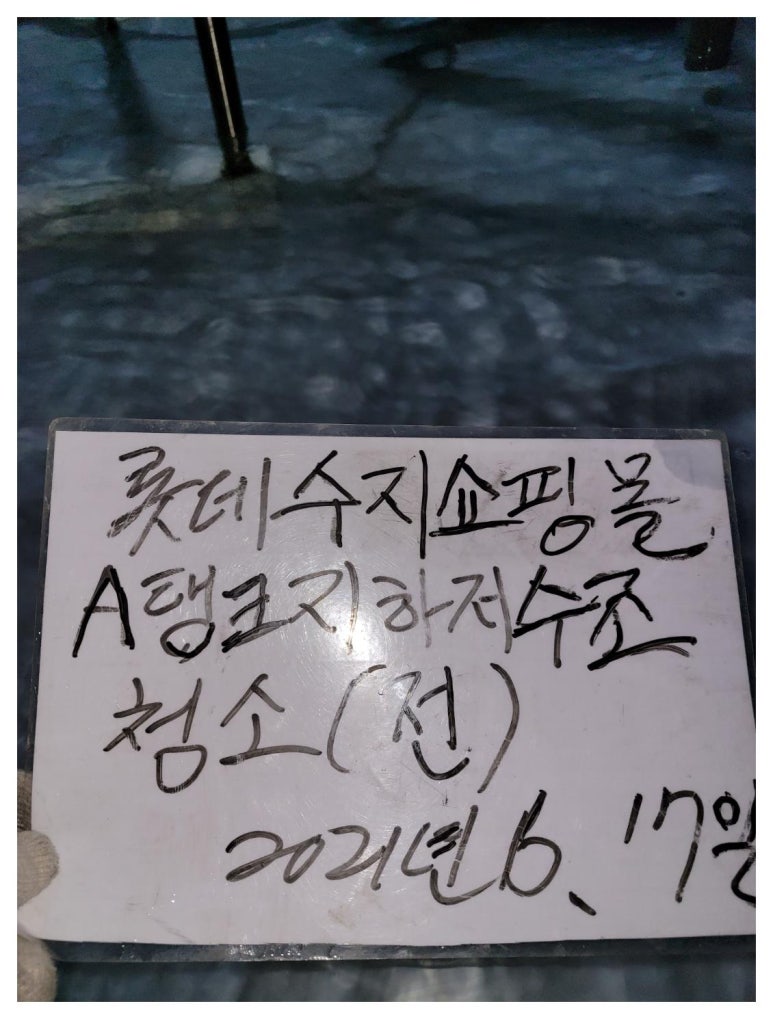 롯데수지쇼핑몰
A탱크지하저수조
청소(전)
2021년 6、17일